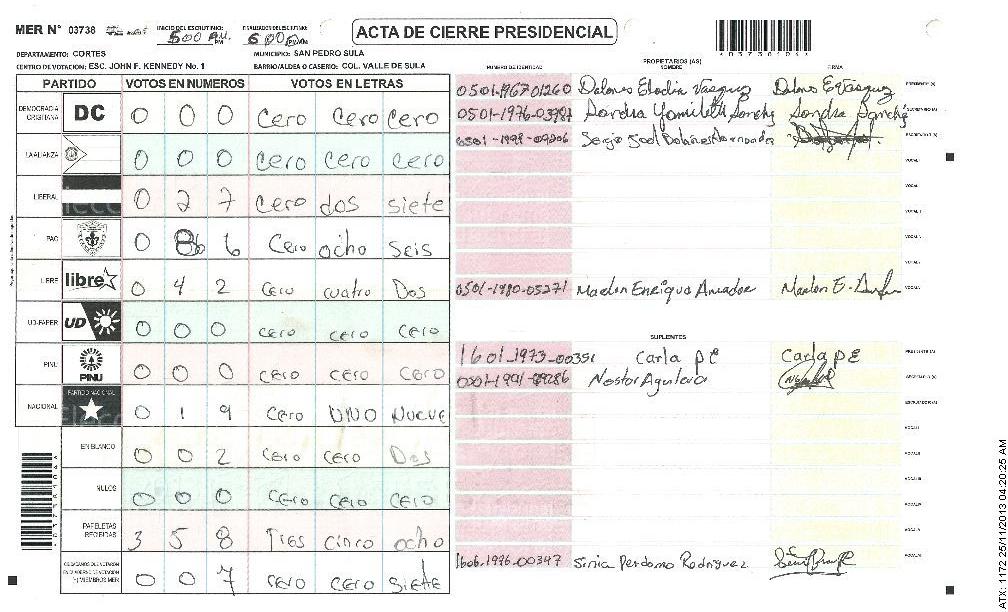 MER N° 03738 INICIO DEL ESCRUTINIO: 500 PM FINALIZACION DEL ESCRUTINIO: 600 PM
ACTA DE CIERRE PRESIDENCIAL
DEPARTAMENTO: CORTES MUNICIPIO: SAN PEDRO SULA
CENTRO DE VOTACION: ESC. JOHN F. KENNEDY No. 1 BARRIO/ALDEA O CASERIO: COL. VALLE DE SULA
PARTIDO VOTOS EN NUMEROS VOTOS EN LETRAS
DEMOCRACIA CRISTIANA DC 0 0 0 Cero Cero Cero
LA ALIANZA 0 0 0 Cero Cero Cero
LIBERAL 0 2 7 Cero dos siete
PAC 0 8 6 Cero ocho seis
LIBRE libre 0 4 2 Cero cuatro Dos
UD-FAPER UD 0 0 0 cero cero cero
PINU PINU 0 0 0 cero cero cero
NACIONAL PARTIDO NACIONAL 0 1 9 Cero UNO NUEVE
EN BLANCO 0 0 2 Cero cero Dos
NULOS 0 0 0 Cero Cero Cero
PAPELETAS RECIBIDAS 3 5 8 Tres cinco ocho
0 0 7 cero cero siete
PROPIETARIOS (AS)
NUMERO DE IDENTIDAD NOMBRE FIRMA
0501-1967-01260 Dolores Elodia Vasquez Dolores E Vasquez PRESIDENTE (A)
0501-1976-03787 Sondra Yomileth Sanchez Sondra Sanchez SECRETARIO (A)
0501-1991-09206 Sergio Joel ESCRUTADOR (A)
VOCAL I
0501-1980-05271 Marlon Enrique Amador Marlon E.
SUPLENTES
1601-1973-00351 Carla PE Carla PE PRESIDENTE (A)
Nestor Aguilera SECRETARIO (A)
ESCRUTADOR (A)
1606-1996-00347 Sinia Perdomo Rodriguez
ATX: 1172 25/11/2013 04:20:25 AM